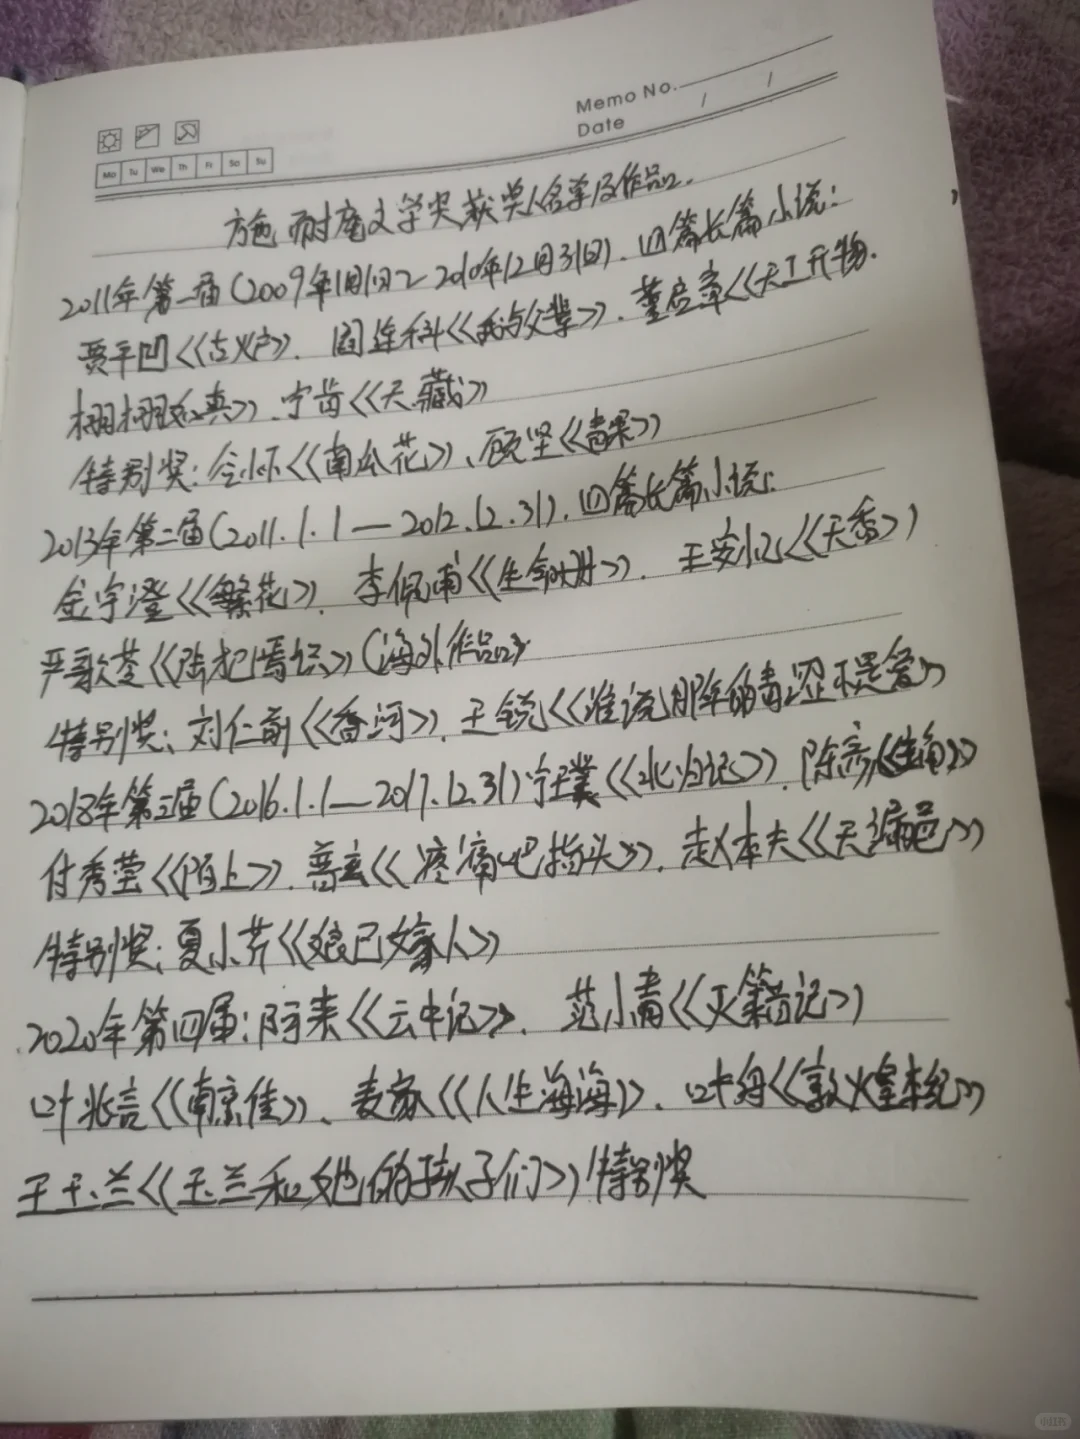 Memo No.
Date / /
Mo Tu We Th Fr Sa Su
施耐庵文学奖获奖人名字及作品.
2011年第一届(2009年1月1日~2010年12月31日).四篇长篇小说:
贾平凹《古炉》、阎连科《我与父辈》、董启章《天工开物.
栩栩如真》、宁肯《天藏》
特别奖:仝小怀《南瓜花》、顾坚《青果》
2013年第二届(2011.1.1—2012.12.31).四篇长篇小说:
金宇澄《繁花》、李佩甫《生命册》、王安忆《天香》
严歌苓《陆犯焉识》(海外作品)
特别奖:刘仁前《香河》、王锐《谁说那年的青涩不是爱》
2018年第三届(2016.1.1—2017.12.31)《北归记》、陈彦《主角》
付秀莹《陌上》、普玄《疼痛吧指头》、赵本夫《天漏邑》
特别奖:夏小芹《娘已嫁人》
2020年第四届:阿来《云中记》、范小青《灭籍记》
叶兆言《南京传》、麦家《人生海海》、叶舟《敦煌本纪》
王玉兰《玉兰和她的孩子们》特别奖
小红书